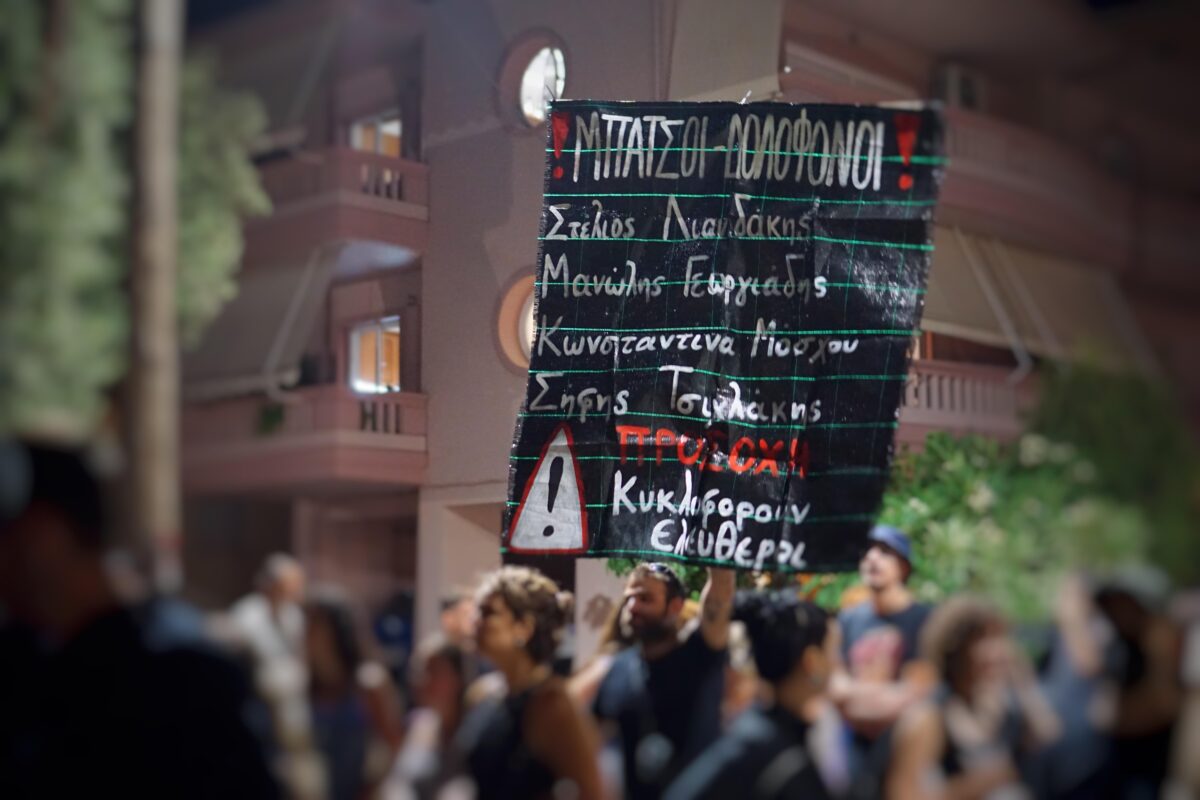 ! ΜΠΑΤΣΟΙ - ΔΟΛΟΦΟΝΟΙ !
Στέλιος Λιανδάκης
Μανώλης Γεωργιάδης
Κωνσταντίνα Μόσχου
Σήφης Τσικλάκης
ΠΡΟΣΟΧΗ
!
Κυκλοφορουν
Ελευθεροι